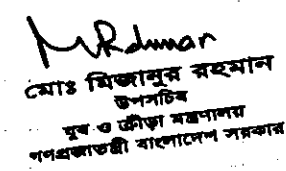 মোঃ মিজানুর রহমান
উপসচিব
যুব ও ক্রীড়া মন্ত্রণালয়
গণপ্রজাতন্ত্রী বাংলাদেশ সরকার